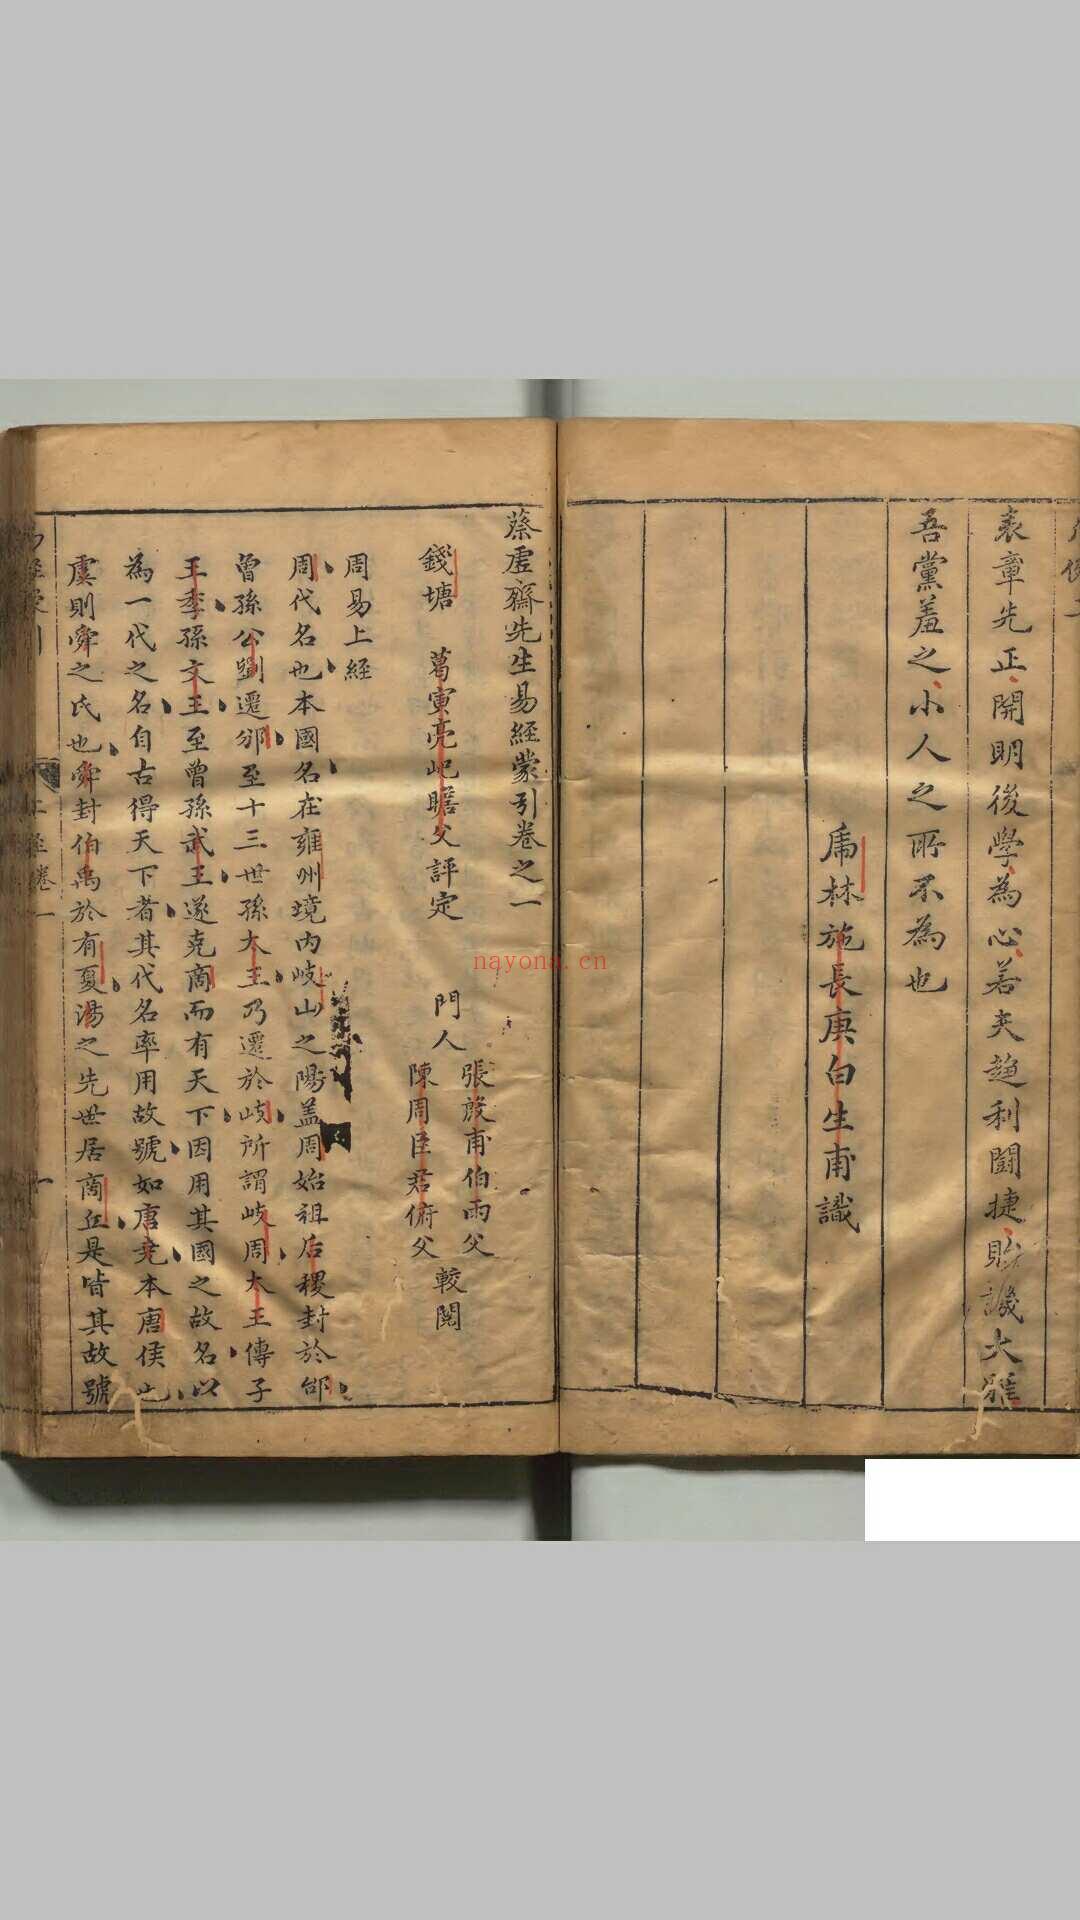 表章先正開明後學為心若夫趨利鬭捷貽譏大雅
吾黨羞之小人之所不為也
虎林施長庚白生甫識
蔡虛齋先生易經蒙引卷之一
錢塘 葛寅亮屺瞻父評定
門人
張殷甫伯雨父
陳周臣君俯父
較閱
周易上經
周代名也本國名在雍州境内岐山之陽盖周始祖后稷封於邰
曾孫公劉遷邠至十三世孫大王乃遷於岐所謂岐周大王傳子
王季孫文王至曾孫武王遂克商而有天下因用其國之故名以
為一代之名自古得天下者其代名率用故號如唐堯本唐侯也
虞則舜之氏也舜封伯禹於有夏湯之先世居商丘是皆其故號
上經卷一
一
nayona.cn